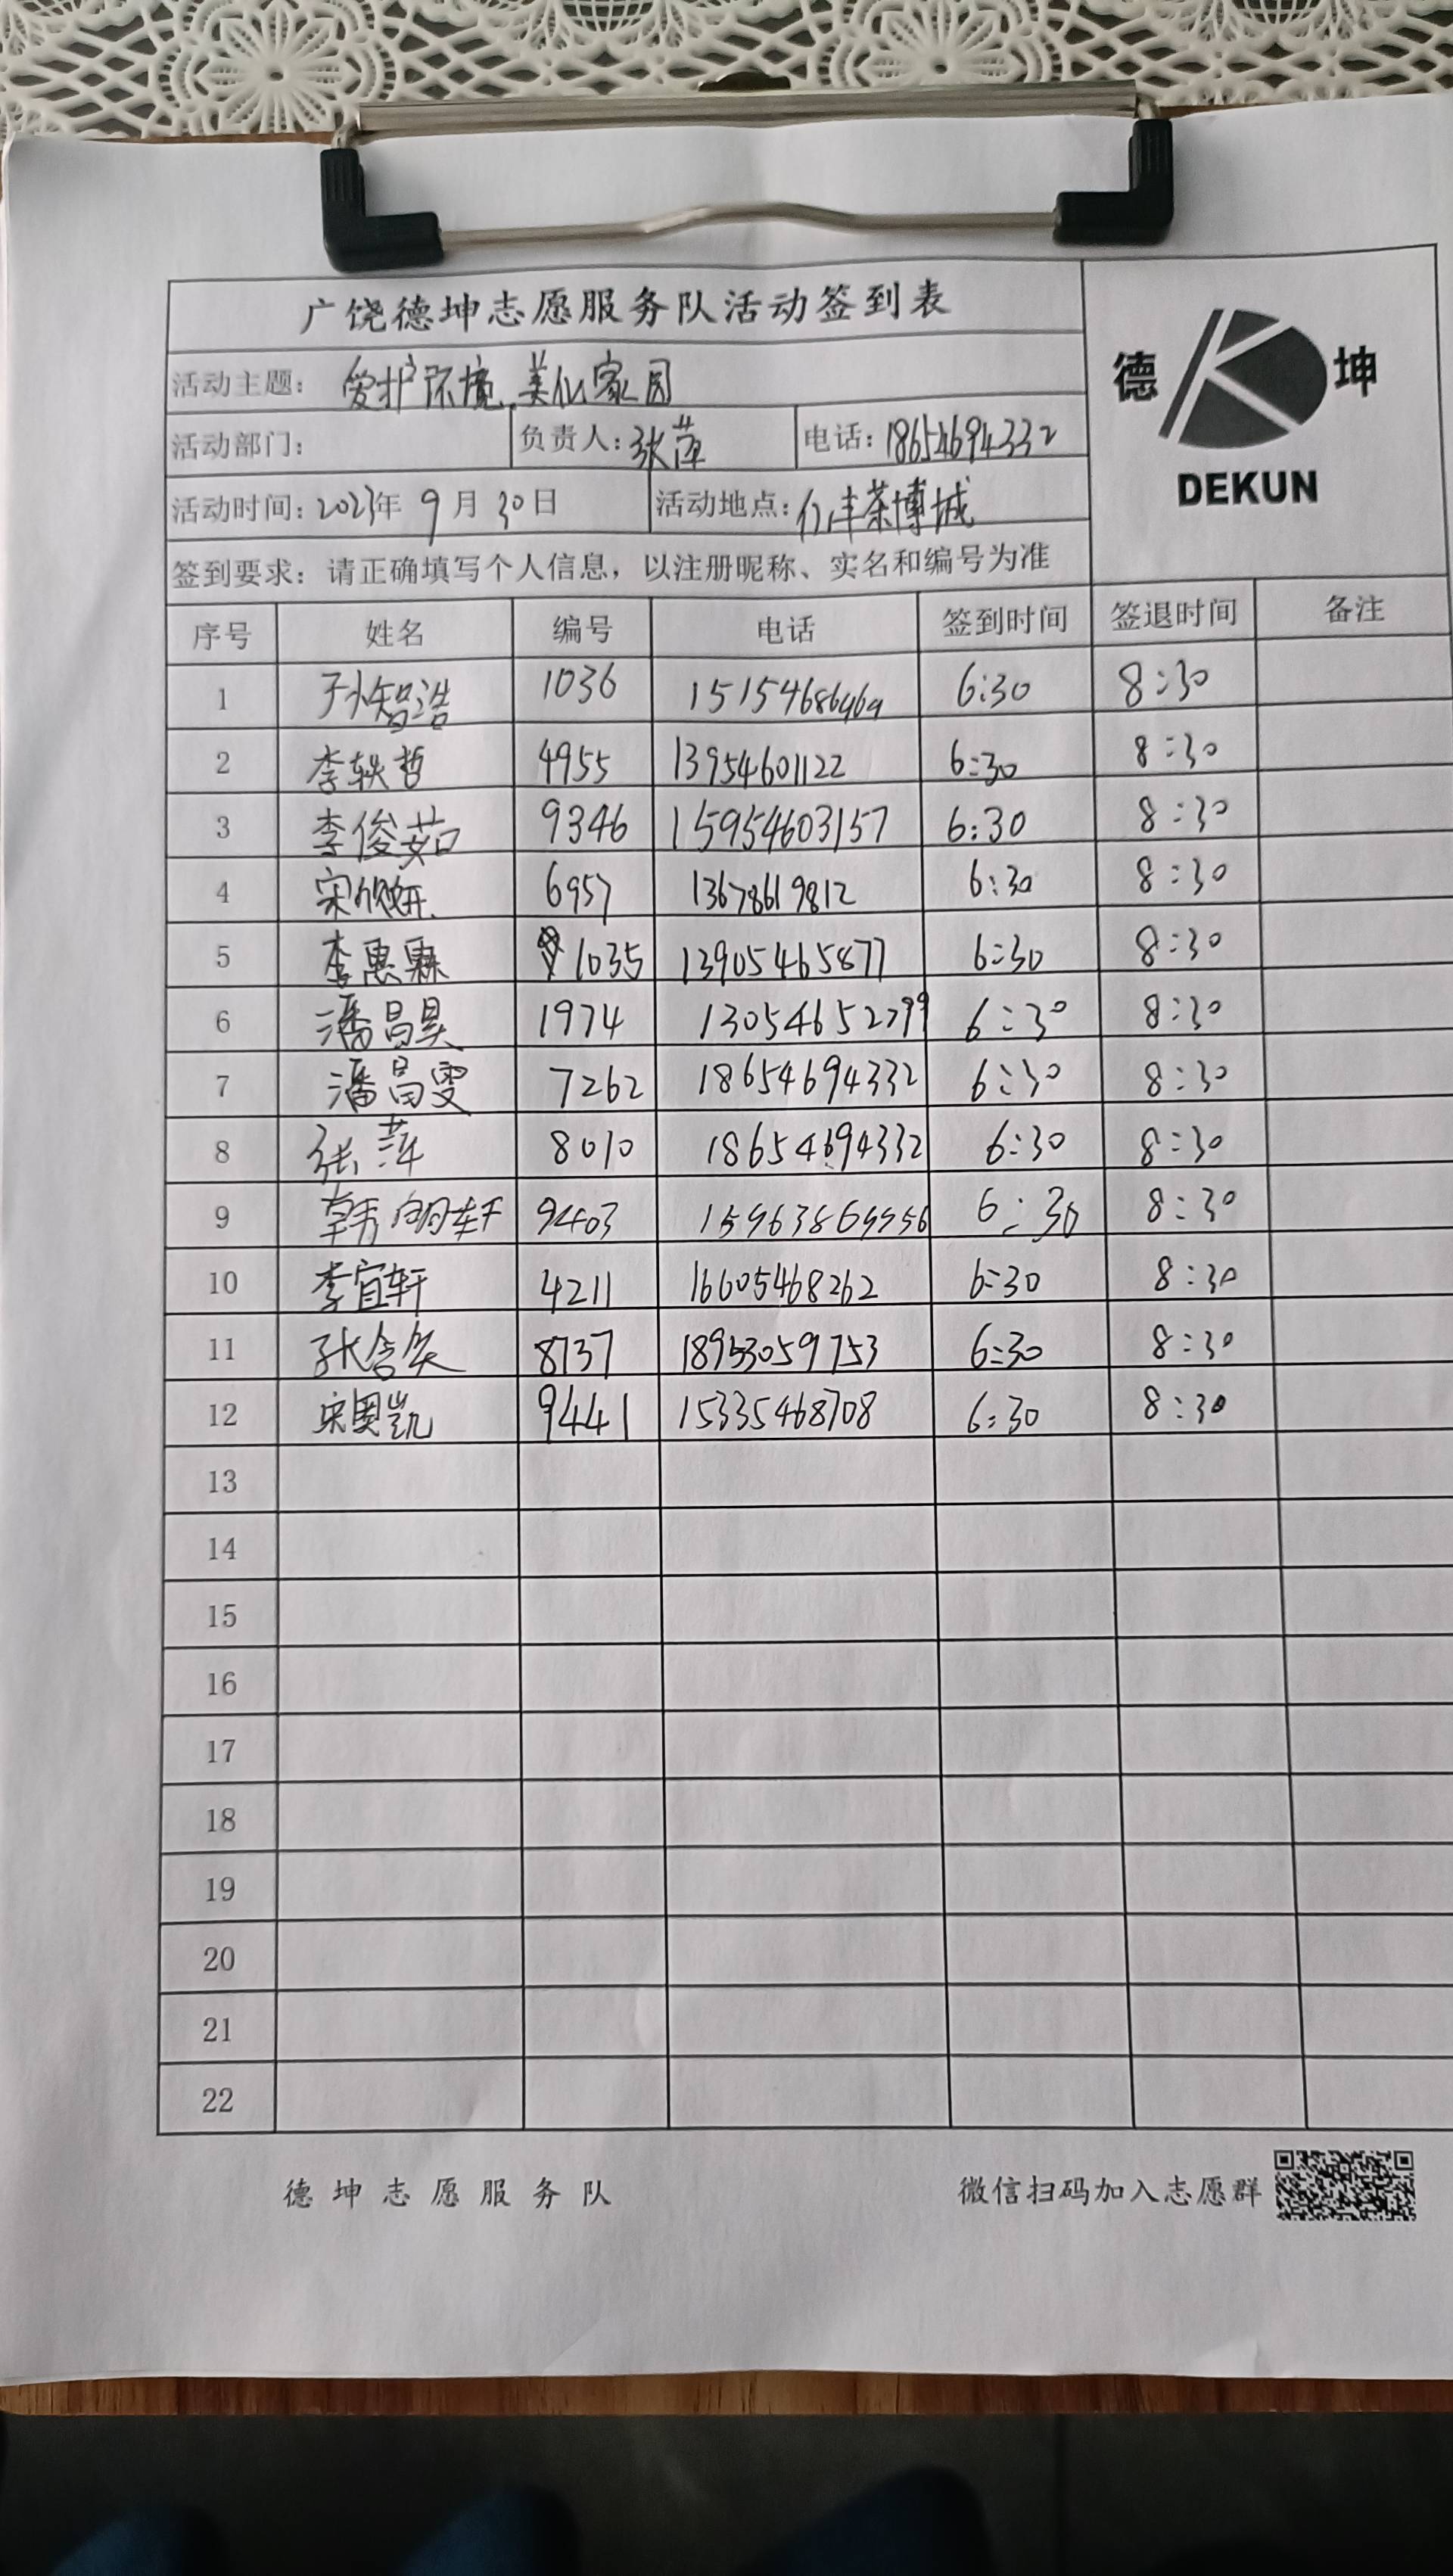 广饶德坤志愿服务队活动签到表
德 坤
DEKUN
活动主题： 爱护环境 美化家园
活动部门： 负责人：张萍 电话：18654694332
活动时间：2023年 9月 30日 活动地点：亿丰茶博城
签到要求：请正确填写个人信息，以注册昵称、实名和编号为准
序号 姓名 编号 电话 签到时间 签退时间 备注
1 孙智浩 1036 6:30 8:30
2 李轶哲 4955 13954601122 6:30 8:30
3 李俊茹 9346 15954603157 6:30 8:30
4 宋欣妍 6957 13678619812 6:30 8:30
5 李惠霖 1035 13905465877 6:30 8:30
6 潘昌昊 1974 13054652799 6:30 8:30
7 潘昌雯 7262 18654694332 6:30 8:30
8 张萍 8010 18654694332 6:30 8:30
9 9403 6:30 8:30
10 李宜轩 4211 16605468262 6:30 8:30
11 8737 18953059753 6:30 8:30
12 宋奥凯 9441 15335468708 6:30 8:30
13
14
15
16
17
18
19
20
21
22
德坤志愿服务队 微信扫码加入志愿群